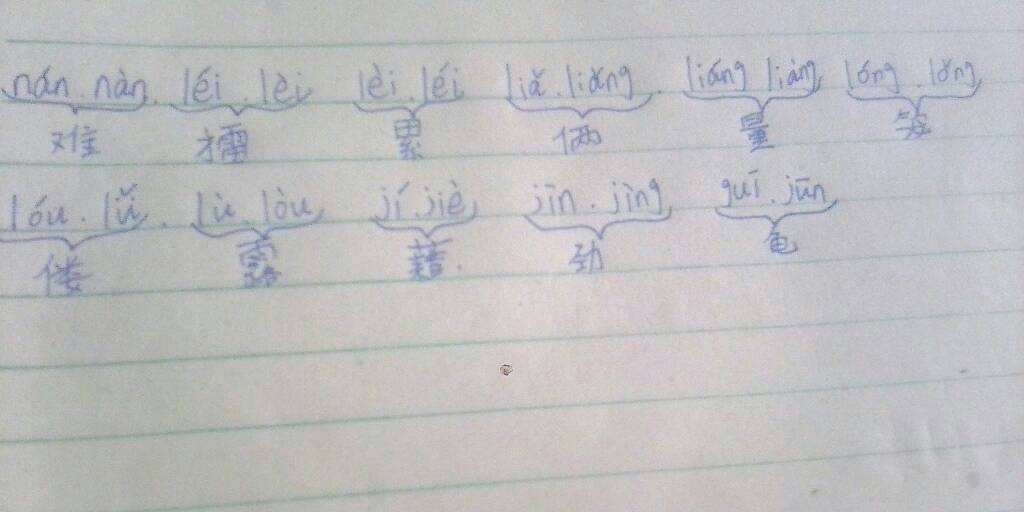 nán.nàn. léi.lèi lèi.léi liǎ.liǎng. liáng liàng lóng.lǒng
难 擂 累 俩 量 笼
lóu.lǚ. lù.lòu jí.jiè jīn.jìng guī.jūn
偻 露 藉. 劲 龟